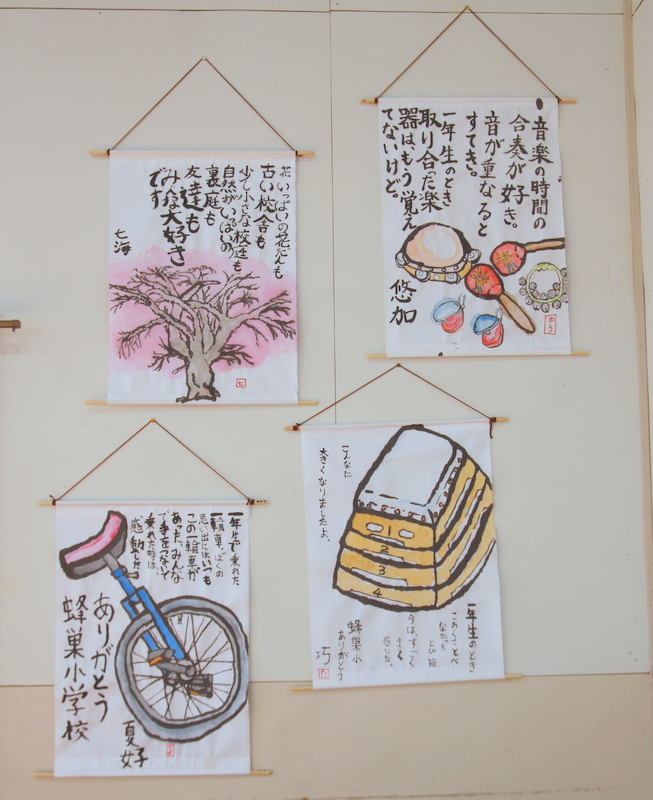 花いっぱいの花だんも
古い校舎も
少し小さな校庭も
自然がいっぱいの
裏庭も
友達も
みんな大好き
です
七海
七
音楽の時間の
合奏が好き。
音が重なると
すてき。
一年生のとき
取り合った楽
器はもう覚え
てないけど。
悠加
ゆう
一年生で乗れた
一輪車。ぼくの
思い出にはいつも
この一輪車が
あった。みんな
で手をつないで
乗れた時は、
感動した
ありがとう
蜂巣小学校
夏好
こんなに
大きくなりましたよ。
1
2
3
4
一年生のとき
こわくてとべ
なかった
とび箱
今は、すごく
小さく
感じた。
蜂巣小
ありがとう
巧